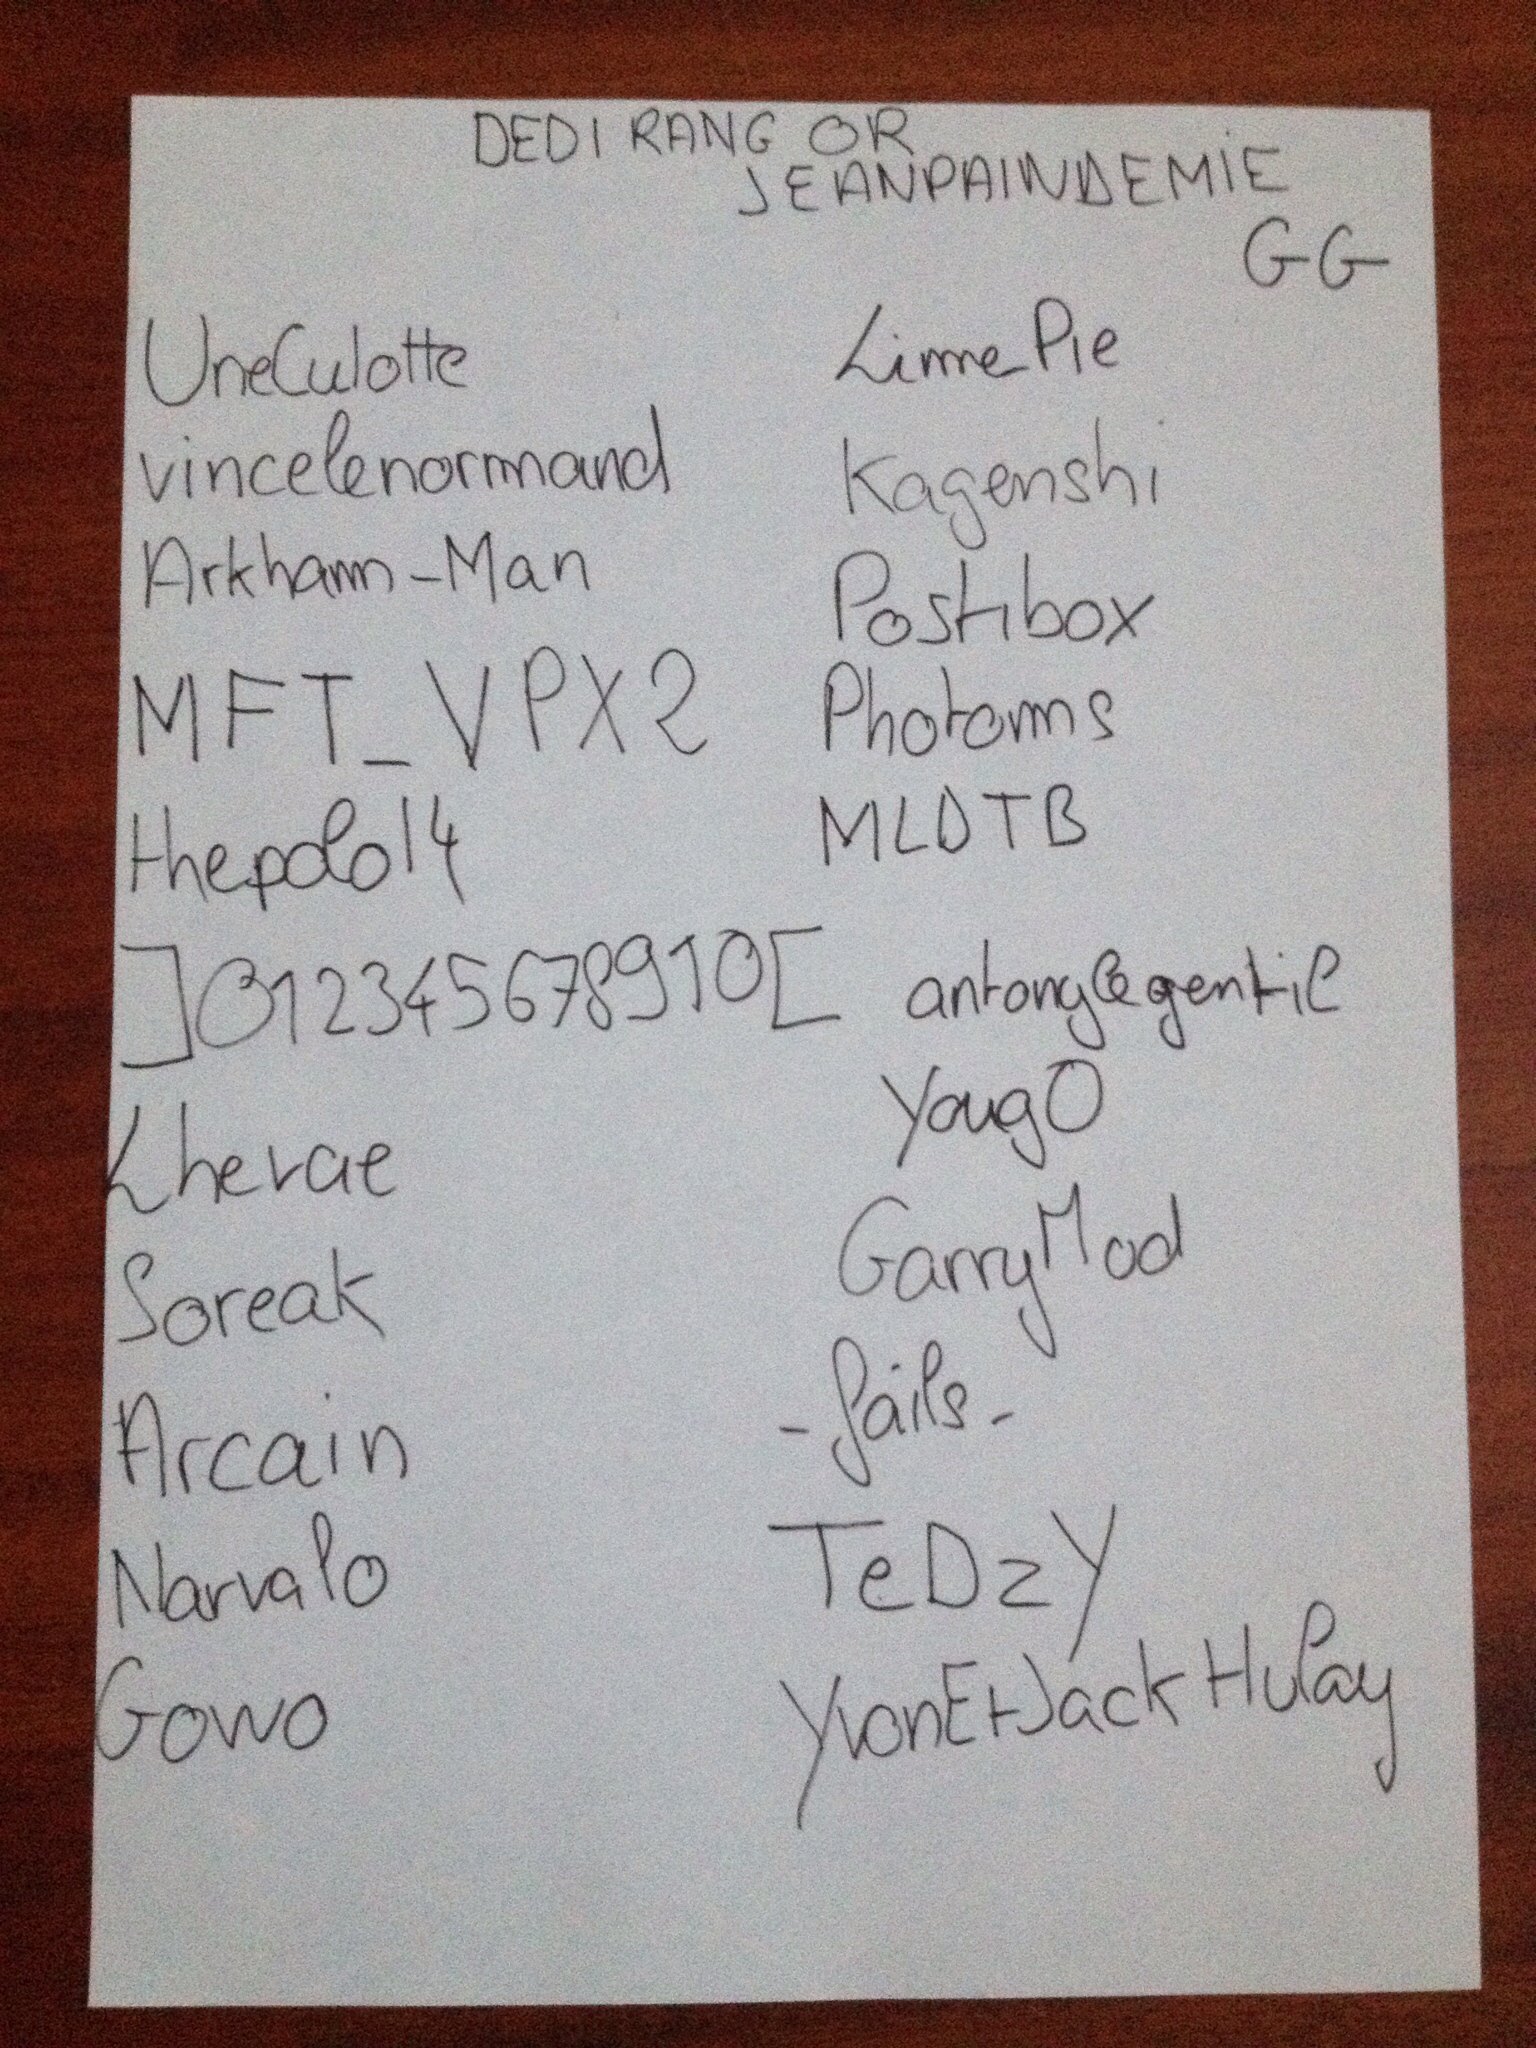 DEDI RANG OR
JEANPAINDEMIE
GG
UneCulotte
vincelenormand
Arkham-Man
MFT_VPX2
thepolo14
]012345678910[
Lherae
Soreak
Arcain
Narvalo
Gowo
Lime_Pie
Kagenshi
Postibox
Photoms
MLDTB
antonylegentil
YougO
GarryMod
-fails-
TeDzY
YvonEtJackHulay